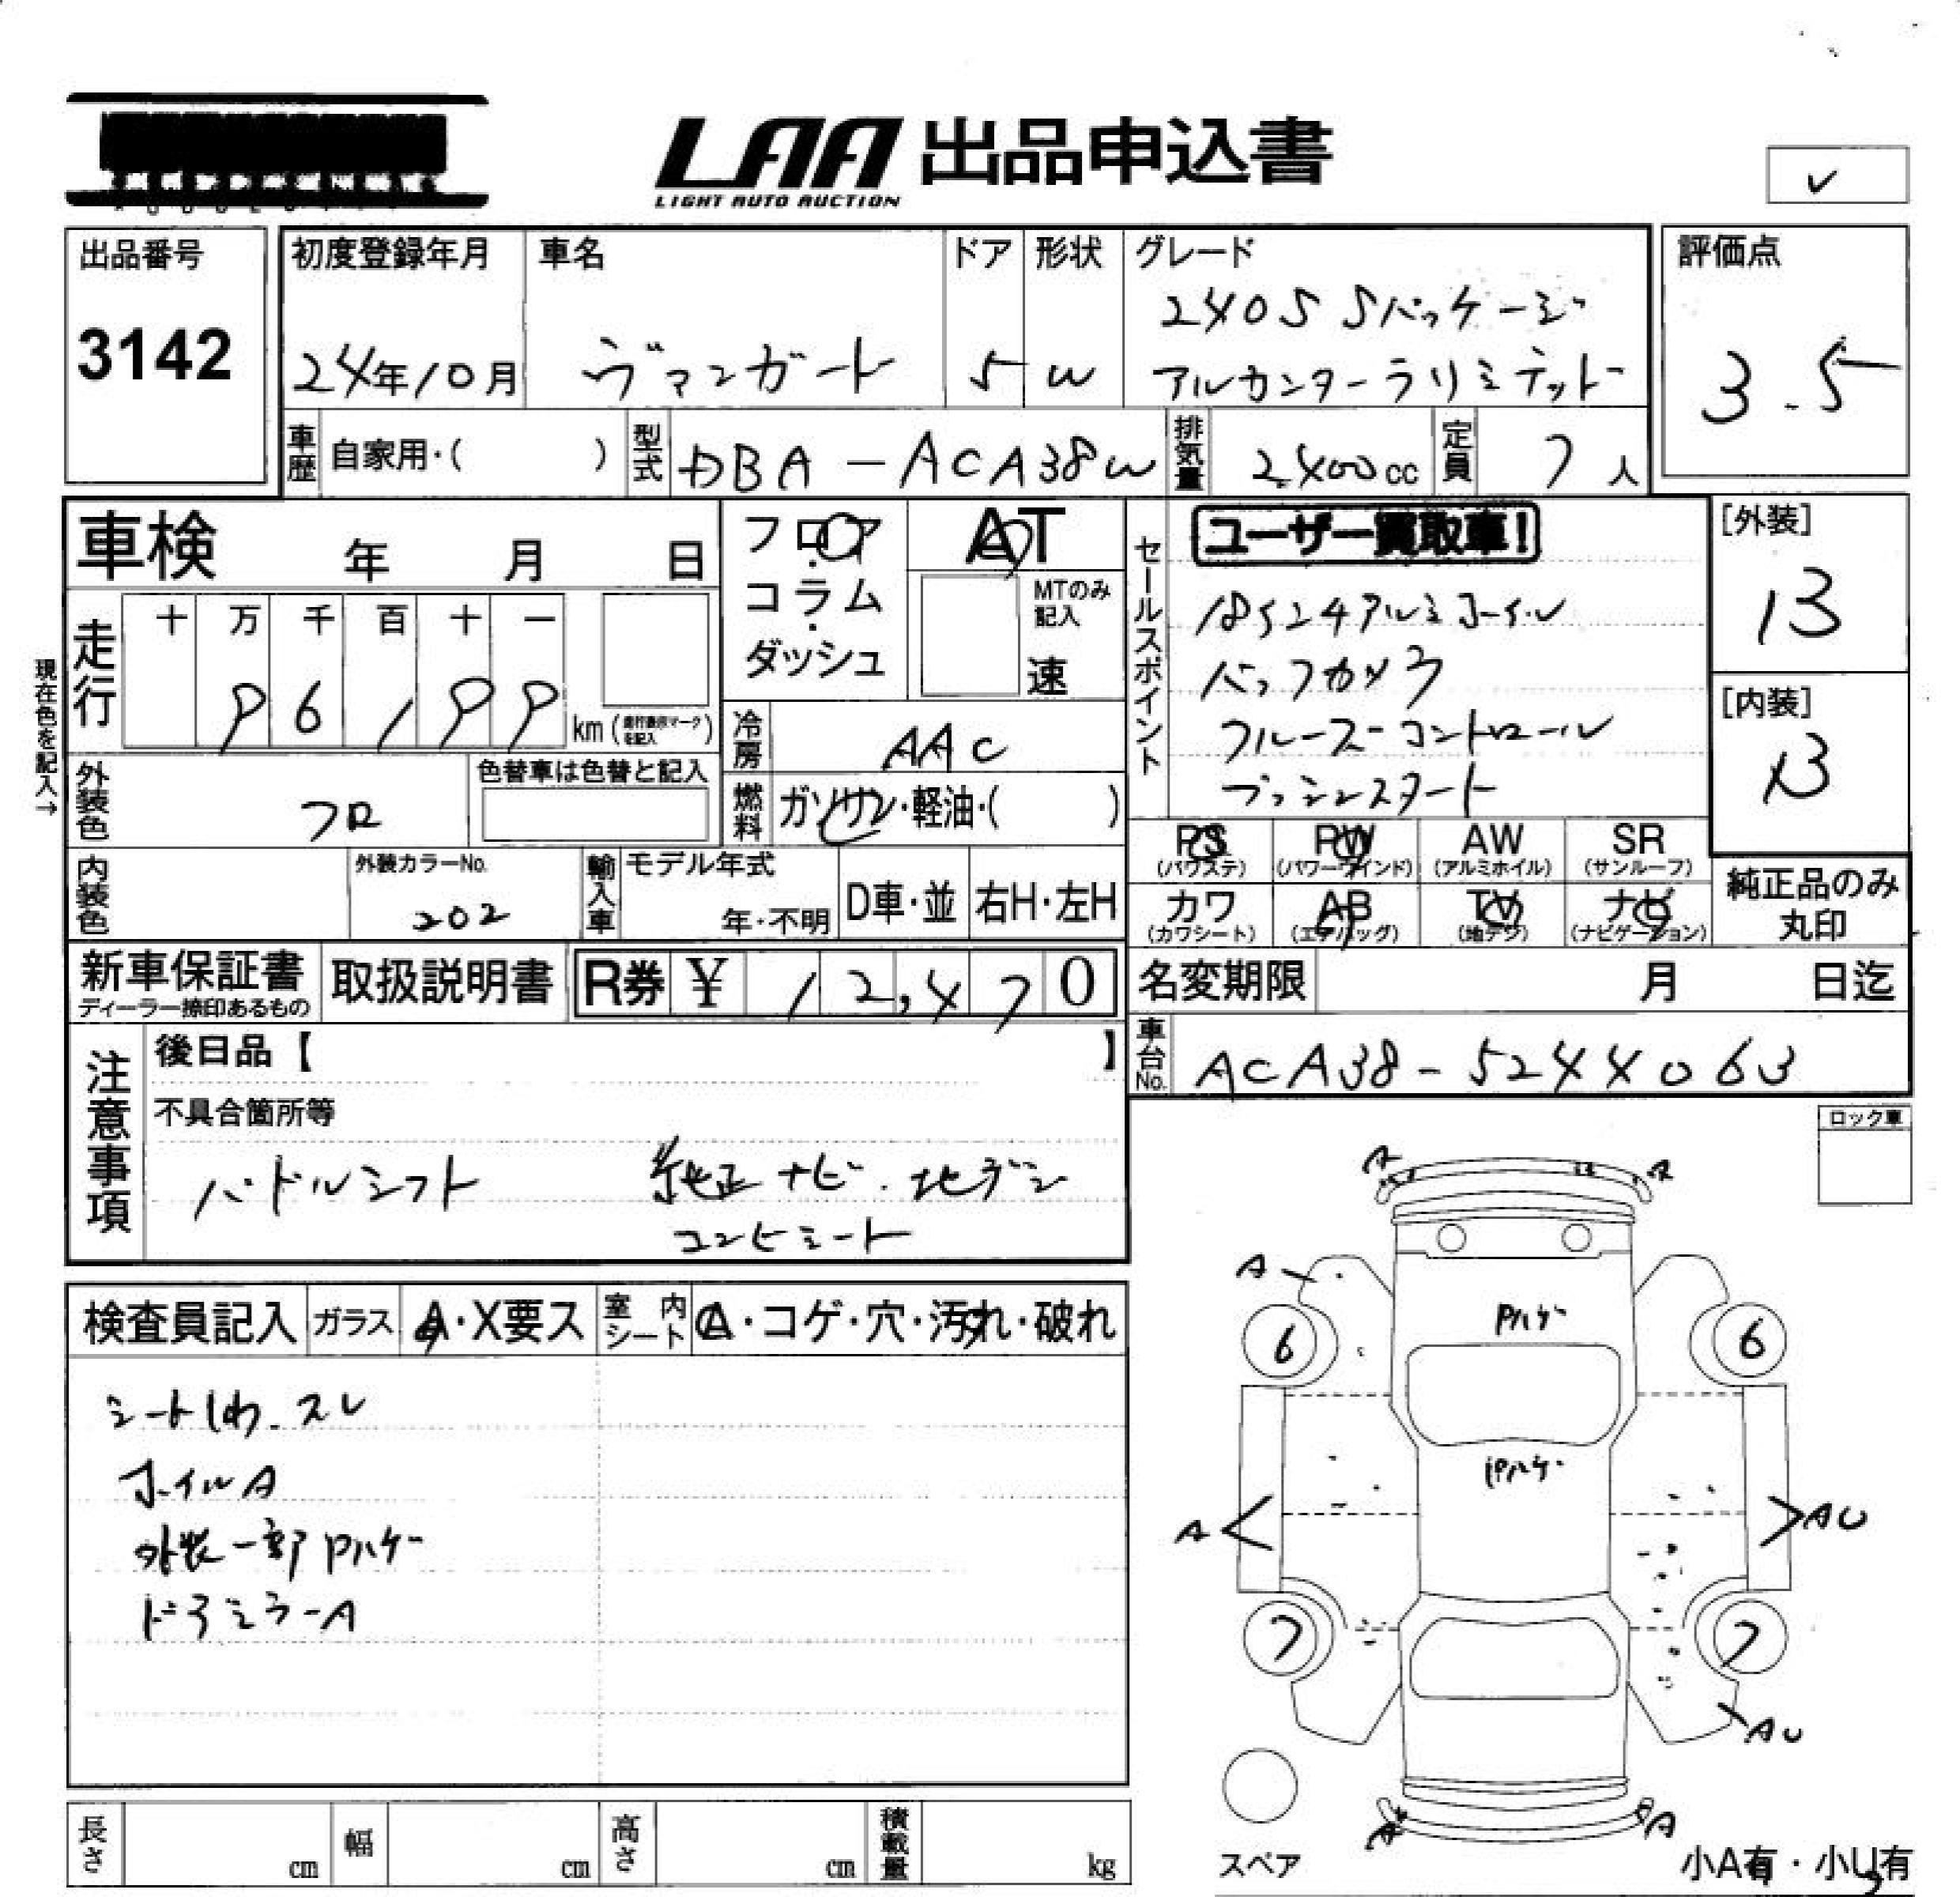 LAA 出品申込書
LIGHT AUTO AUCTION
✓
出品番号
3142
初度登録年月
24年10月
車名
ヴァンガード
ドア
5
形状
W
グレード
240S Sパッケージ
アルカンターラリミテッド
評価点
3.5
車歴
自家用・( )
型式
DBA-ACA38W
排気量
2400cc
定員
7人
車検 年 月 日
フロア・コラム・ダッシュ
AT
MTのみ記入
速
セールスポイント
ユーザー買取車!
18インチアルミホイール
バックカメラ
クルーズコントロール
プッシュスタート
[外装]
13
[内装]
B
現在色を記入→
走行
十 万 千 百 十 一
96,199 km (走行表示マークを記入)
冷房
AAC
外装色
クロ
色替車は色替と記入
燃料
ガソリン・軽油・( )
PS (パワステ)
PW (パワーウインド)
AW (アルミホイル)
SR (サンルーフ)
カワ (カワシート)
AB (エアバッグ)
TV (地デジ)
ナビ (ナビゲーション)
純正品のみ丸印
内装色
外装カラーNo.
202
輸入車
モデル年式
年・不明
D車・並
右H・左H
新車保証書
ディーラー捺印あるもの
取扱説明書
R券 ¥ 12,470
名変期限 月 日迄
車台No.
ACA38-5244063
注意事項
後日品【 】
不具合箇所等
パドルシフト 純正ナビ・地デジ
コンビシート
ロック車
検査員記入
ガラス
A・X要ス
室内シート
A・コゲ・穴・汚れ・破れ
シートしわ・スレ
ホイルA
外装一部Pハゲ
ドアミラーA
A A
A
Pハゲ
6 6
Pハゲ
A AU
7 7
AU
A A
スペア
小A有・小U有
長さ cm
幅 cm
高さ cm
積載量 kg